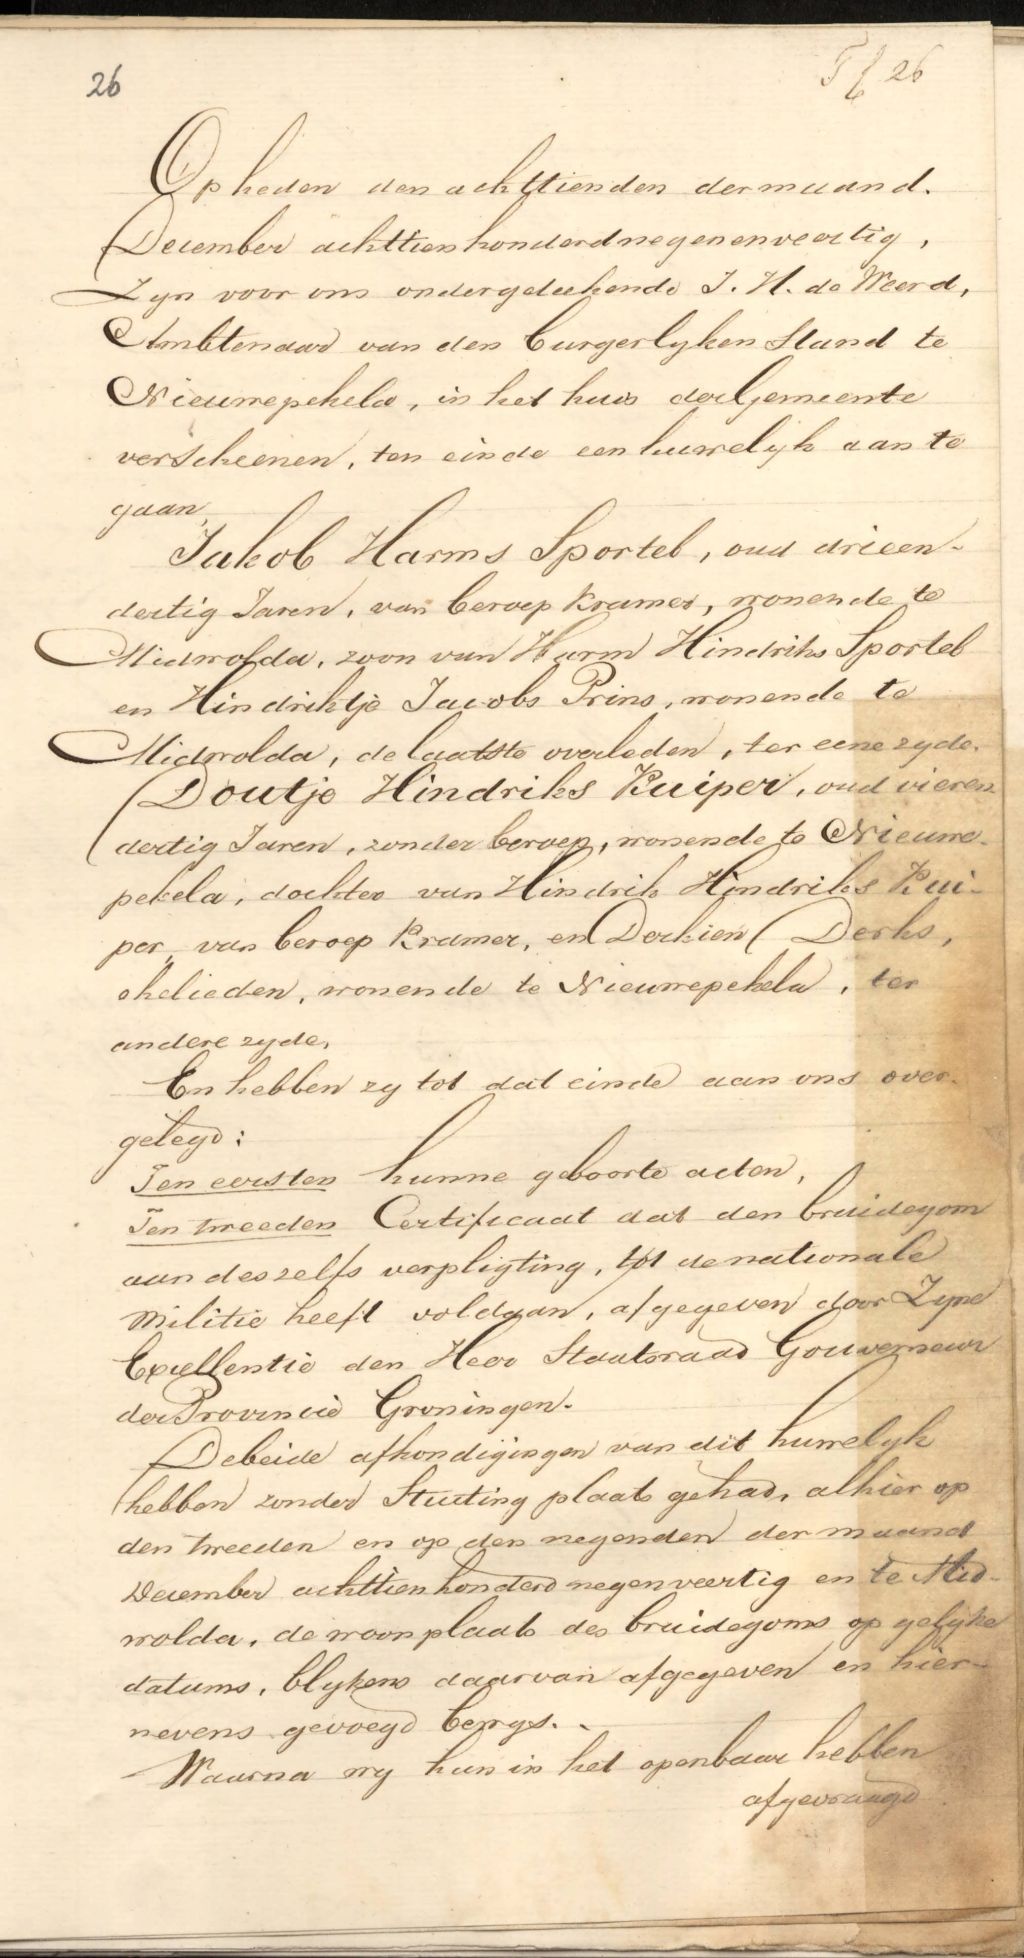 26
26
Op heden den achttienden der maand.
December achttienhonderdnegenenveertig,
Zyn voor ons ondergeteekende J. H. de Weerd,
Ambtenaar van den burgerlyken Stand te
Nieuwepekela, in het huis der Gemeente
verscheenen, ten einde een huwelyk aan te
gaan,
Jakob Harms Sportel, oud drieen-
dertig Jaren, van beroep Kramer, wonende te
Midwolda, zoon van Harm Hindriks Sportel
en Hindriktje Jacobs Prins, wonende te
Midwolda, de laatste overleden, ter eene zyde.
Doutje Hindriks Kuiper, oud vieren
dertig Jaren, zonder beroep, wonende te Nieuwe-
pekela, dochter van Hindrik Hindriks Kui-
per, van beroep Kramer, en Derkien Derks,
ehelieden, wonende te Nieuwepekela, ter
andere zyde,
En hebben zy tot dat einde aan ons over-
gelegd:
Ten eersten hunne geboorte acten,
Ten tweeden Certificaat dat den bruidegom
aan deszelfs verpligting, tot de nationale
Militie heeft voldaan, afgegeven door Zyne
Excellentie den Heer Staatsraad Gouverneur
der Provincie Groningen.
De beide afkondigingen van dit huwelyk
hebben zonder Stuiting plaats gehad, alhier op
den tweeden en op den negenden der maand
December achttienhonderd negenveertig en te Mid-
wolda, de woonplaats des bruidegoms op gelyke
datums, blykens daarvan afgegeven en hier-
nevens gevoegd bewys.
Waarna wy hun in het openbaar hebben
afgevraagd